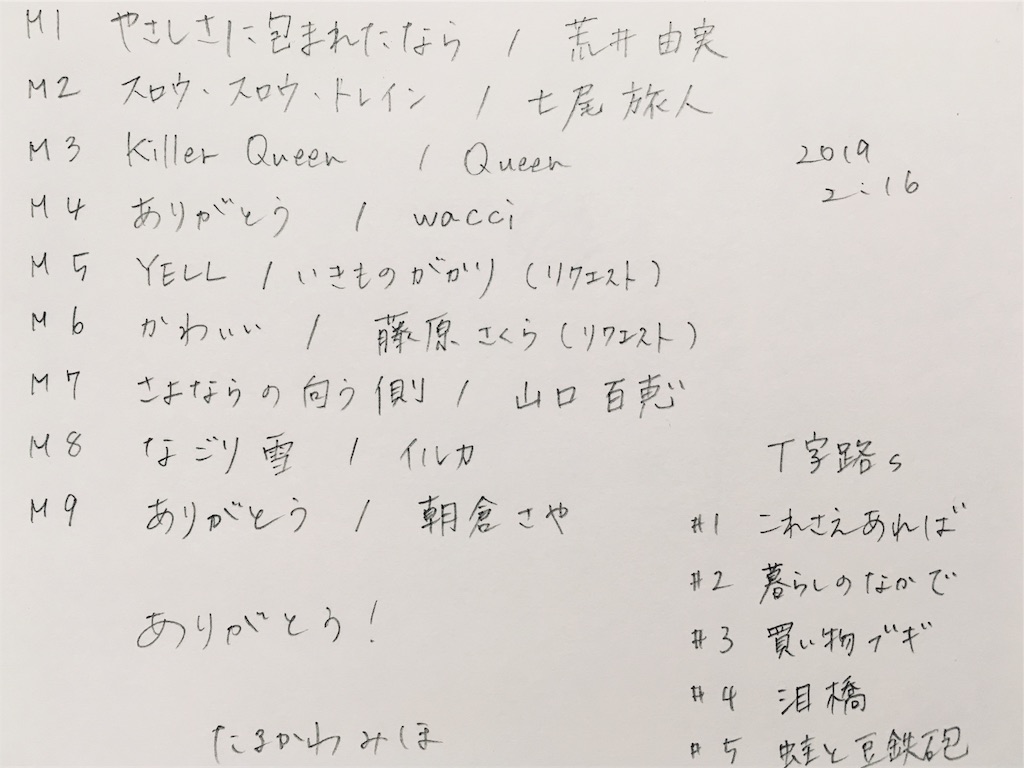 M1 やさしさに包まれたなら / 荒井由実
M2 スロウ・スロウ・トレイン / 七尾旅人
M3 Killer Queen / Queen
M4 ありがとう / wacci
M5 YELL / いきものがかり (リクエスト)
M6 かわいい / 藤原さくら (リクエスト)
M7 さよならの向う側 / 山口百恵
M8 なごり雪 / イルカ
M9 ありがとう / 朝倉さや
ありがとう!
たまかわみほ
2019
2.16
T字路s
#1 これさえあれば
#2 暮らしのなかで
#3 買い物ブギ
#4 泪橋
#5 蛙と豆鉄砲